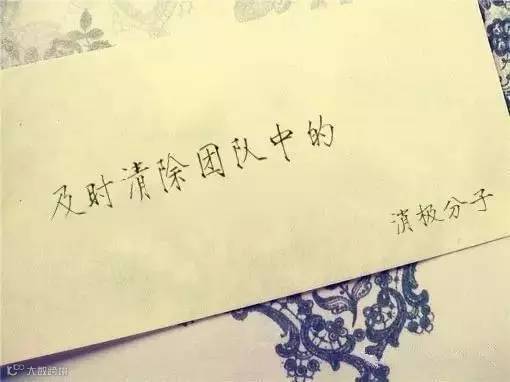 及时清除团队中的
消极分子
大数跨境